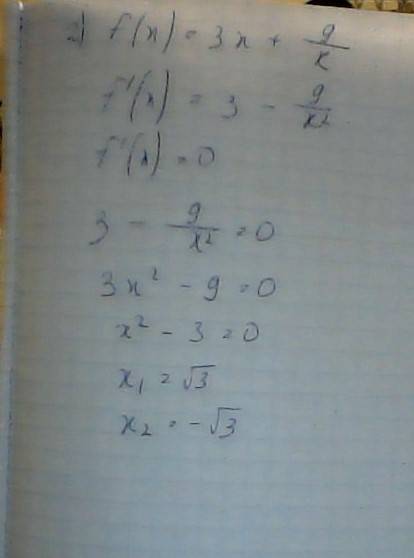 2) f(x) = 3x + 9/x
f'(x) = 3 - 9/x²
f'(x) = 0
3 - 9/x² = 0
3x² - 9 = 0
x² - 3 = 0
x₁ = √3
x₂ = -√3